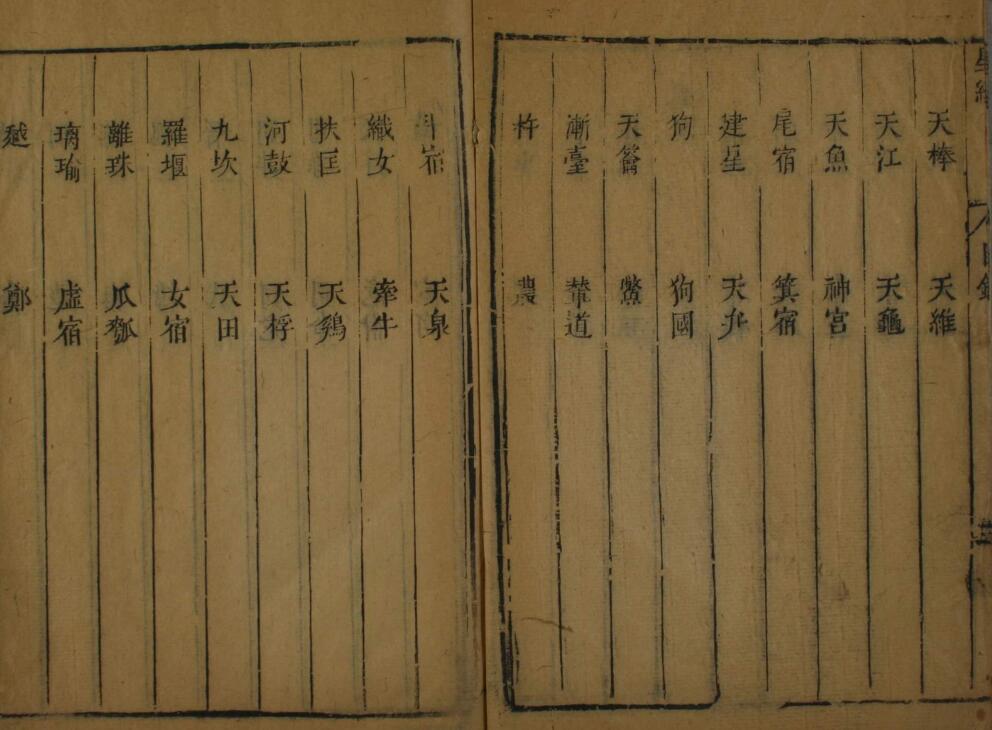 星經 目錄
天棓 天維
天江 天龜
天魚 神宮
尾宿 箕宿
建星 天弁
狗 狗國
天籥 鱉
漸臺 輦道
杵 農
斗宿 天泉
織女 牽牛
扶匡 天鷄
河鼓 天桴
九坎 天田
羅堰 女宿
離珠 瓜瓠
璃瑜 虛宿
越 鄭